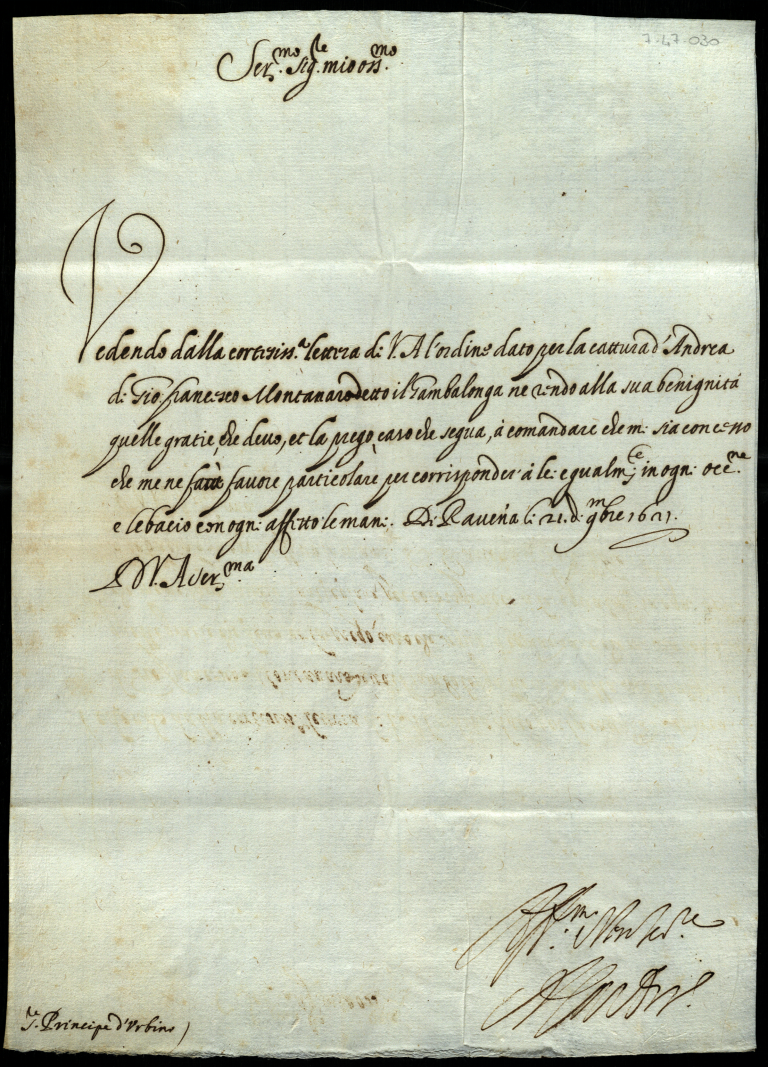 7-47-030
Ser.mo Sig.re mio oss.mo
Vedendo dalla cortesiss.a lettera di V. A l'ordine dato per la cattura d'Andrea
di Gio. francesco Montanaro detto il Gambalonga ne rendo alla sua benignità
quelle gratie, che devo, et la prego, caso che segua, à comandare che mi sia concesso
che me ne farà favore particolare per corrisponder à lei egualm.te in ogni occ.ne
e le bacio con ogni affetto le mani. Di Raveña li 21. di 9mbre 1621.
D V. A Ser.ma
Aff.mo
S.r Principe d'Urbino